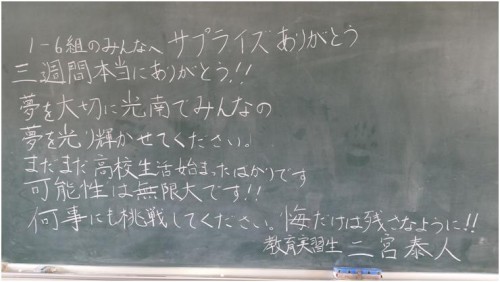 1-6組のみんなへ サプライズありがとう
三週間本当にありがとう!!
夢を大切に光南でみんなの
夢を光り輝かせてください。
まだまだ高校生活始まったばかりです
可能性は無限大です!!
何事にも挑戦してください。悔だけは残さなように!!
教育実習生 二宮泰人